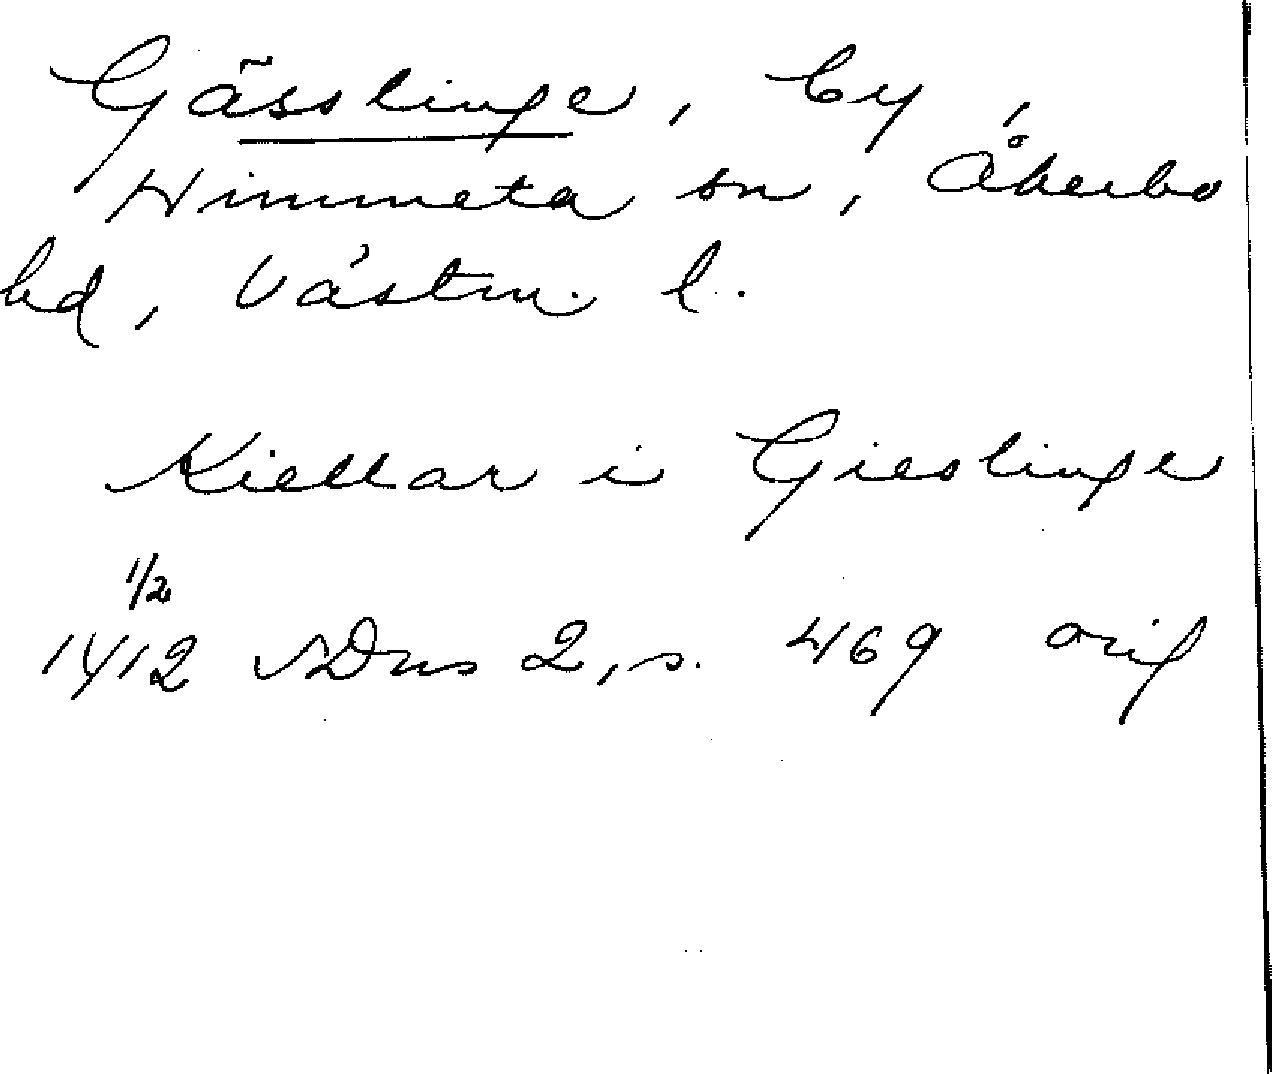 Gässlinge, by,
Himmeta sn, Åkerbo
hd, Västm. l.
Kiellar i Gieslinge
1/2
1412 SDns 2, s. 469 orig